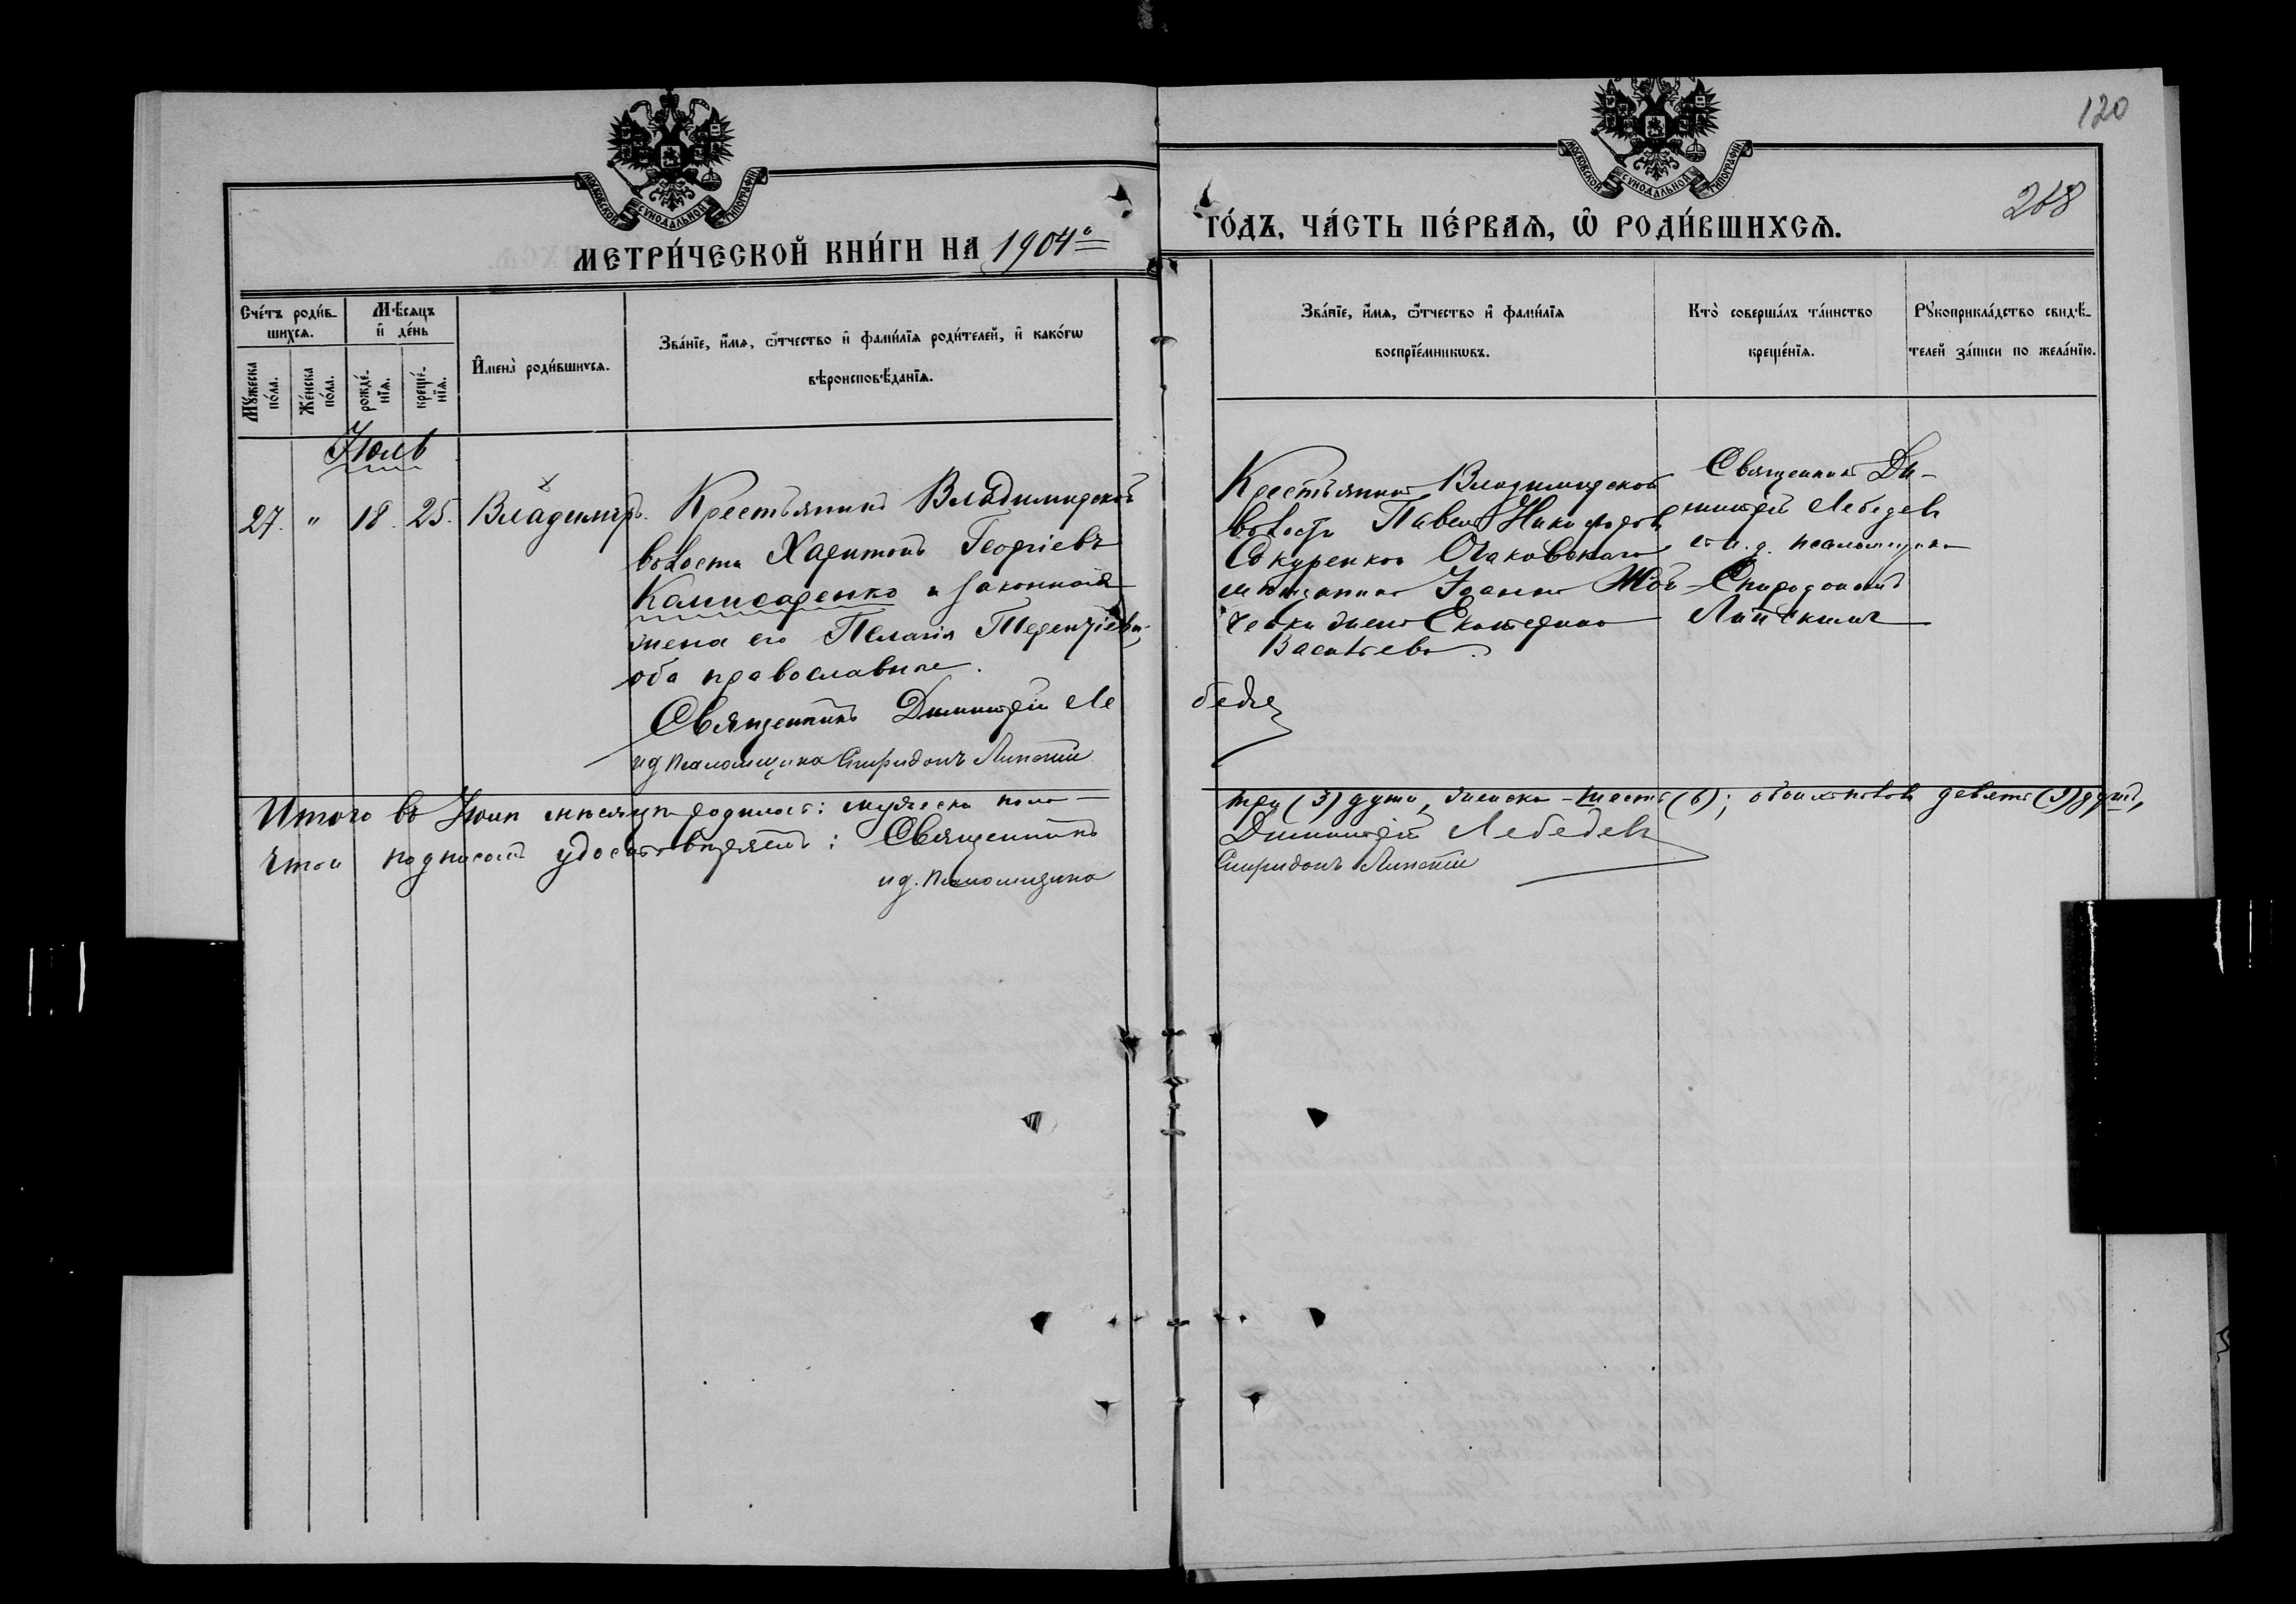 120
268
МОСКОВСКОЙ СѴНОДАЛЬНОЙ ТИПОГРАФІИ
МОСКОВСКОЙ СѴНОДАЛЬНОЙ ТИПОГРАФІИ
МЕТРИ́ЧЕСКОЙ КНИ́ГИ НА 1904º
ГО́ДЪ, ЧА́СТЬ ПЕ́РВАѦ, Ѡ҆ РОДИ́ВШИХСѦ.
Сче́тъ роди́в-
шихсѧ.
Мѣ́сѧцъ
и҆ де́нь
Мꙋ́жеска
по́ла.
Же́нска
по́ла.
рожде́-
нїѧ.
креще́-
нїѧ.
И҆мена̀ роди́вшихсѧ.
Зва́нїе, и҆́мѧ, ѻ҆́тчество и҆ фами́лїѧ роди́телей, и҆ како́гѡ
вѣроисповѣ́данїѧ.
Зва́нїе, и҆́мѧ, ѻ҆́тчество и҆ фами́лїѧ
воспрїе́мникѡвъ.
Кто̀ соверша́лъ та́инство
креще́нїѧ.
Рꙋкоприкла́дство свидѣ́-
телей за́писи по жела́нїю.
Іюль
27. " 18. 25. Владиміръ. Крестьянинъ Владимирской
волости Харитонъ Георгіевъ
Камисаренко и законная
жена его Пелагія Терентіева,
оба православные.
Священникъ Димитрій Ле
ид Псаломщика Спиридонъ Липскій
Крестьянинъ Владимирской
волости Павелъ Никифоровъ
Очаковскаго
мѣщанина Іоанна
жена Екатерина
Васильева.
Священникъ Ди-
митрій Лебедевъ
с и. д. псаломщика
Спиридономъ
Липскимъ
бедев
Итого въ Іюлѣ мѣсяцѣ родилось: мужеска пола —
три (3) души, женска - шесть (6); обоихъ половъ девять (9) душъ,
Что и подписомъ удостовѣряемъ: Священникъ
Димитрій Лебедевъ
ид. Псаломщика
Спиридонъ Липскій